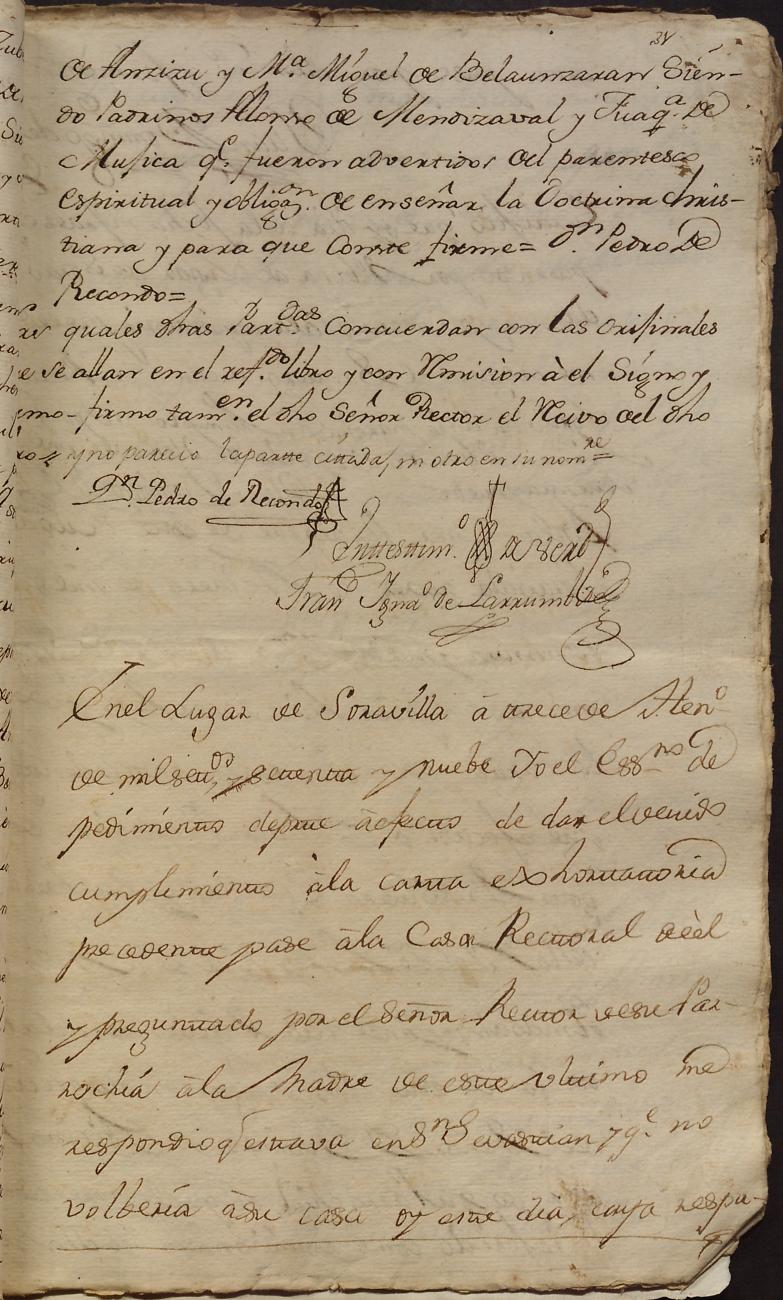 34
de Anzizu y Mª Miguel de Belaunzaran Sien-
do Padrinos Alonso de Mendizaval y Juaqª. De
Musica qe. fueron advertidos del parentesco
espiritual y obligaon. de enseñar la Doctrina Chris-
tiana y para que Conste firme= Dn. Pedro De
Recondo=
quales dhas Partdas Concuerdan con las orijinales
e se allan en el refdo. libro y con Remision à el Signo y
firmo tamen. el dho Señor Rector el Recivo del dho
y no parecio la partte cittada, ni otro en su nomre=
Dn. Pedro de Recondo
En ttesttimo. de Verd
Frano Ignao de Larrumbide
En el Lugar de Soravilla â ttrece de Hen.o
de mil settos y settentta y nuebe Yo el Essno de
pedimientto de partte â efectto de dar el devido
cumplimientto âla cartta exhorttattoria
precedentte pase âla Casa Recttoral de èl
y preguntado por el Señor Recttor de su Par-
rochia âla Madre de estte ulttimo me
respondio q esttava en Sn Sevasttian y qe. no
volberia âsu casa oy estte dia, cuya respu-